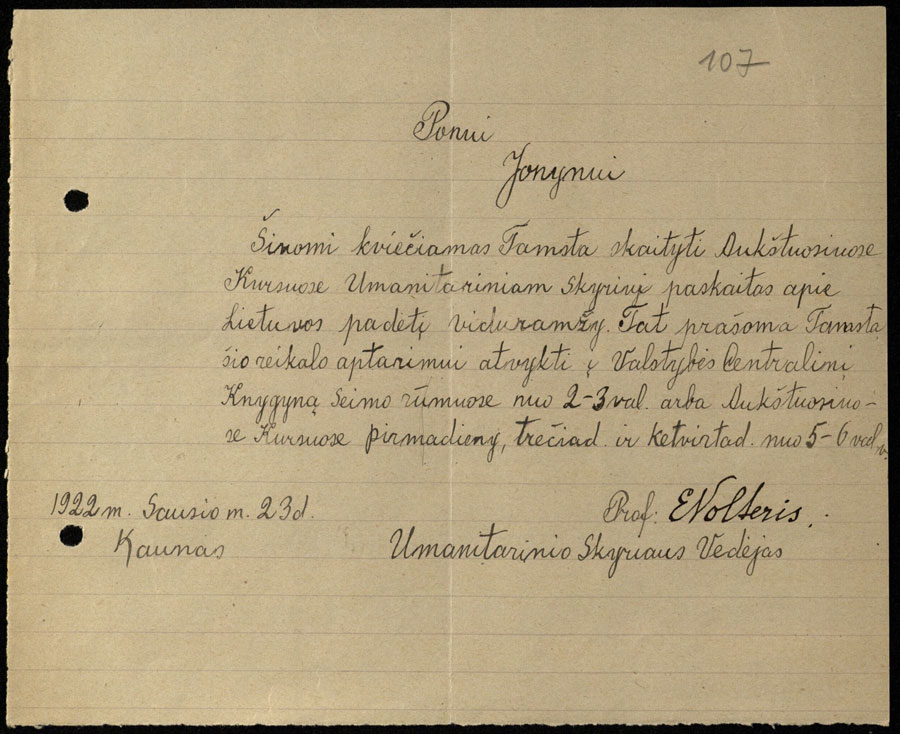 107
Ponui
Jonynui
Šinomi kviečiamas Tamsta skaityti Aukštuosiuose
Kursuose Umanitariniam Skyriuj paskaitas apie
Lietuvos padėtį viduramžy. Tat prašoma Tamstą
šio reikalo aptarimui atvykti į Valstybės Centralinį
Knygyną Seimo rūmuose nuo 2-3 val. arba Aukštuosiuo-
se Kursuose pirmadieny, trečiad. ir ketvirtad. nuo 5-6 val. v.
1922 m. Sausio m. 23 d. Prof: EVolteris.
Kaunas Umanitarinio Skyriaus Vedėjas